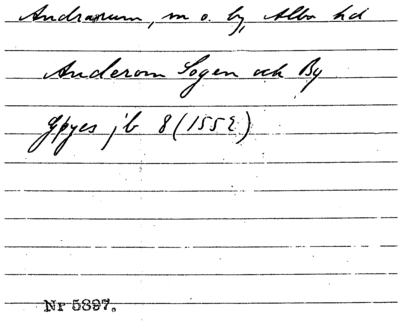 Andrarum, sn o. by, Albo hd
Anderom Sogen och By
Gyyes jb 8 (1552)
Nr 5897.